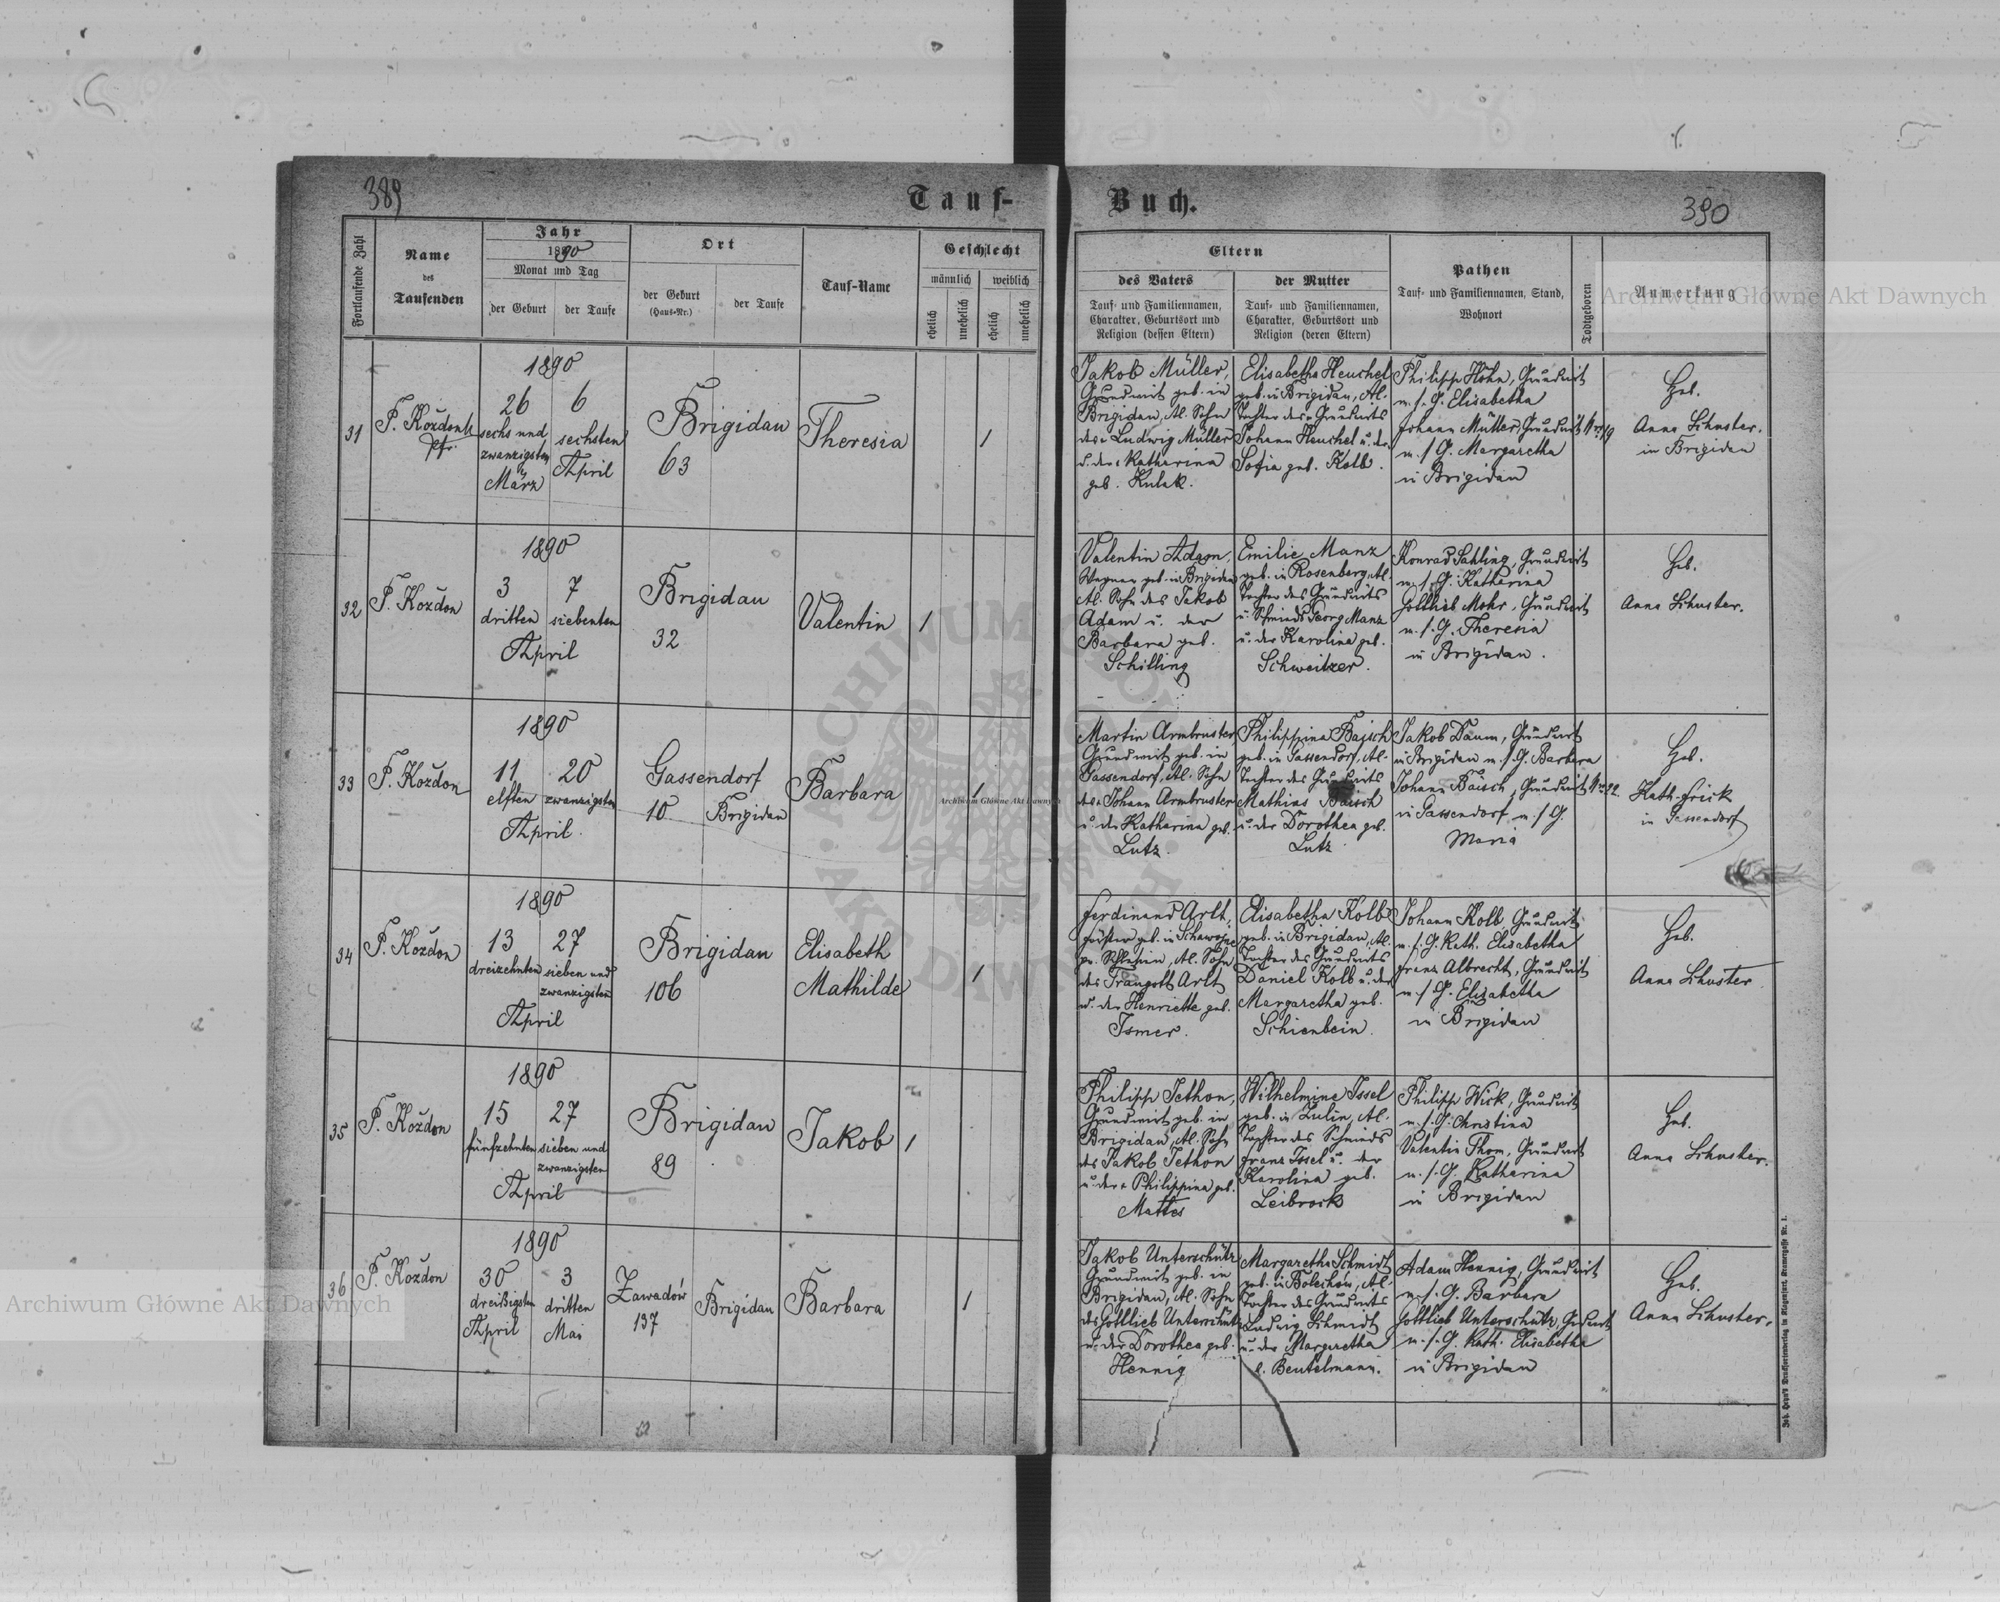 389
Tauf-
Buch.
390
Fortlaufende Zahl
Name
des
Taufenden
Jahr
1890
Monat und Tag
der Geburt
der Taufe
Ort
der Geburt
(Haus-Nr.)
der Taufe
Tauf-Name
Geschlecht
männlich
weiblich
ehelich
unehelich
ehelich
unehelich
Eltern
des Vaters
Tauf- und Familiennamen,
Charakter, Geburtsort und
Religion (dessen Eltern)
der Mutter
Tauf- und Familiennamen,
Charakter, Geburtsort und
Religion (deren Eltern)
Pathen
Tauf- und Familiennamen, Stand,
Wohnort
Todtgeboren
Anmerkung
31
F. Koždon
Pfr.
1890
26
sechs und
zwanzigsten
März
6
sechsten
April
Brigidau
63
Theresia
1
Jakob Müller,
Grundwirt geb. in
Brigidau, Al. Sohn
des Ludwig Müller
u. der Katharina
geb. Kulak.
Elisabetha Heuchel
geb. in Brigidau, Al.
Tochter des Grundwirts
Johann Heuchel u. der
Sofia geb. Kolb.
Philipp Höhn, Grundwirt
m. s. G. Elisabetha
Johann Müller, Grundwirt
m. s. G. Margaretha
in Brigidau
Heb.
Anna Schuster.
in Brigidau
32
F. Koždon
1890
3
dritten
7
siebenten
April
Brigidau
32
Valentin
1
Valentin Adam,
Wagner geb. in Brigidau
Al. Sohn des Jakob
Adam u. der
Barbara geb.
Schilling
Emilie Manz
geb. in Rosenberg, Al.
Tochter des Grundwirts
u. Schmieds Georg Manz
u. der Karolina geb.
Schweitzer.
Konrad Sahling, Grundwirt
m. s. G. Katharina
Gottlieb Mohr, Grundwirt
m. s. G. Theresia
in Brigidau.
Heb.
Anna Schuster.
33
F. Koždon
1890
11
elften
20
zwanzigsten
April.
Gassendorf
10
Brigidau
Barbara
1
Martin Armbruster,
Grundwirt geb. in
Gassendorf, Al. Sohn
des Johann Armbruster
u. der Katharina geb.
Lutz.
Philippina Baisch
geb. in Gassendorf, Al.
Tochter des Grundwirts
Mathias Baisch
u. der Dorothea geb.
Lutz.
Jakob Daum, Grundwirt
in Brigidau m. s. G. Barbara
Johann Baisch, Grundwirt
in Gassendorf m. s. G.
Maria
Heb.
Kath. Frick
in Gassendorf
34
F. Koždon
1890
13
dreizehnten
27
sieben und
zwanzigsten
April
Brigidau
106
Elisabeth
Mathilde
1
Ferdinand Arlt,
Förster geb. in
pr. Schlesien, Al. Sohn
des Traugott Arlt
u. der Henriette geb.
Ismer.
Elisabetha Kolb
geb. in Brigidau, Al.
Tochter des Grundwirts
Daniel Kolb u. der
Margaretha geb.
Schienbein.
Johann Kolb Grundwirt
m. s. G. Kath. Elisabetha
Franz Albrecht, Grundwirt
m. s. G. Elisabetha
in Brigidau
Heb.
Anna Schuster
35
F. Koždon
1890
15
fünfzehnten
27
sieben und
zwanzigsten
April
Brigidau
89
Jakob
1
Philipp Jethon,
Grundwirt geb. in
Brigidau, Al. Sohn
des Jakob Jethon
u. der Philippina geb.
Mattes
Wilhelmine Issel
geb. in Lulin, Al.
Tochter des Schmieds
Franz Issel u. der
Karolina geb.
Leibrock
Philipp Wick, Grundwirt
m. s. G. Christina
Valentin Thom, Grundwirt
m. s. G. Katharina
in Brigidau
Heb.
Anna Schuster.
36
F. Koždon
1890
30
dreißigsten
April
3
dritten
Mai
Zawadów
137
Brigidau
Barbara
1
Jakob Unterschütz
Grundwirt geb. in
Brigidau, Al. Sohn
des Gottlieb Unterschütz
u. der Dorothea geb.
Hennig
Margaretha Schmidt
geb. in Bolechów, Al.
Tochter des Grundwirts
Ludwig Schmidt
u. der Margaretha
g. Beutelmann.
Adam Hennig, Grundwirt
m. s. G. Barbara
Gottlieb Unterschütz, Grundwirt
m. s. G. Kath. Elisabetha
in Brigidau
Heb.
Anna Schuster.
Archiwum Główne Akt Dawnych
Archiwum Główne Akt Dawnych
Archiwum Główne Akt Dawnych
ARCHIWUM
AKT DAWNYCH